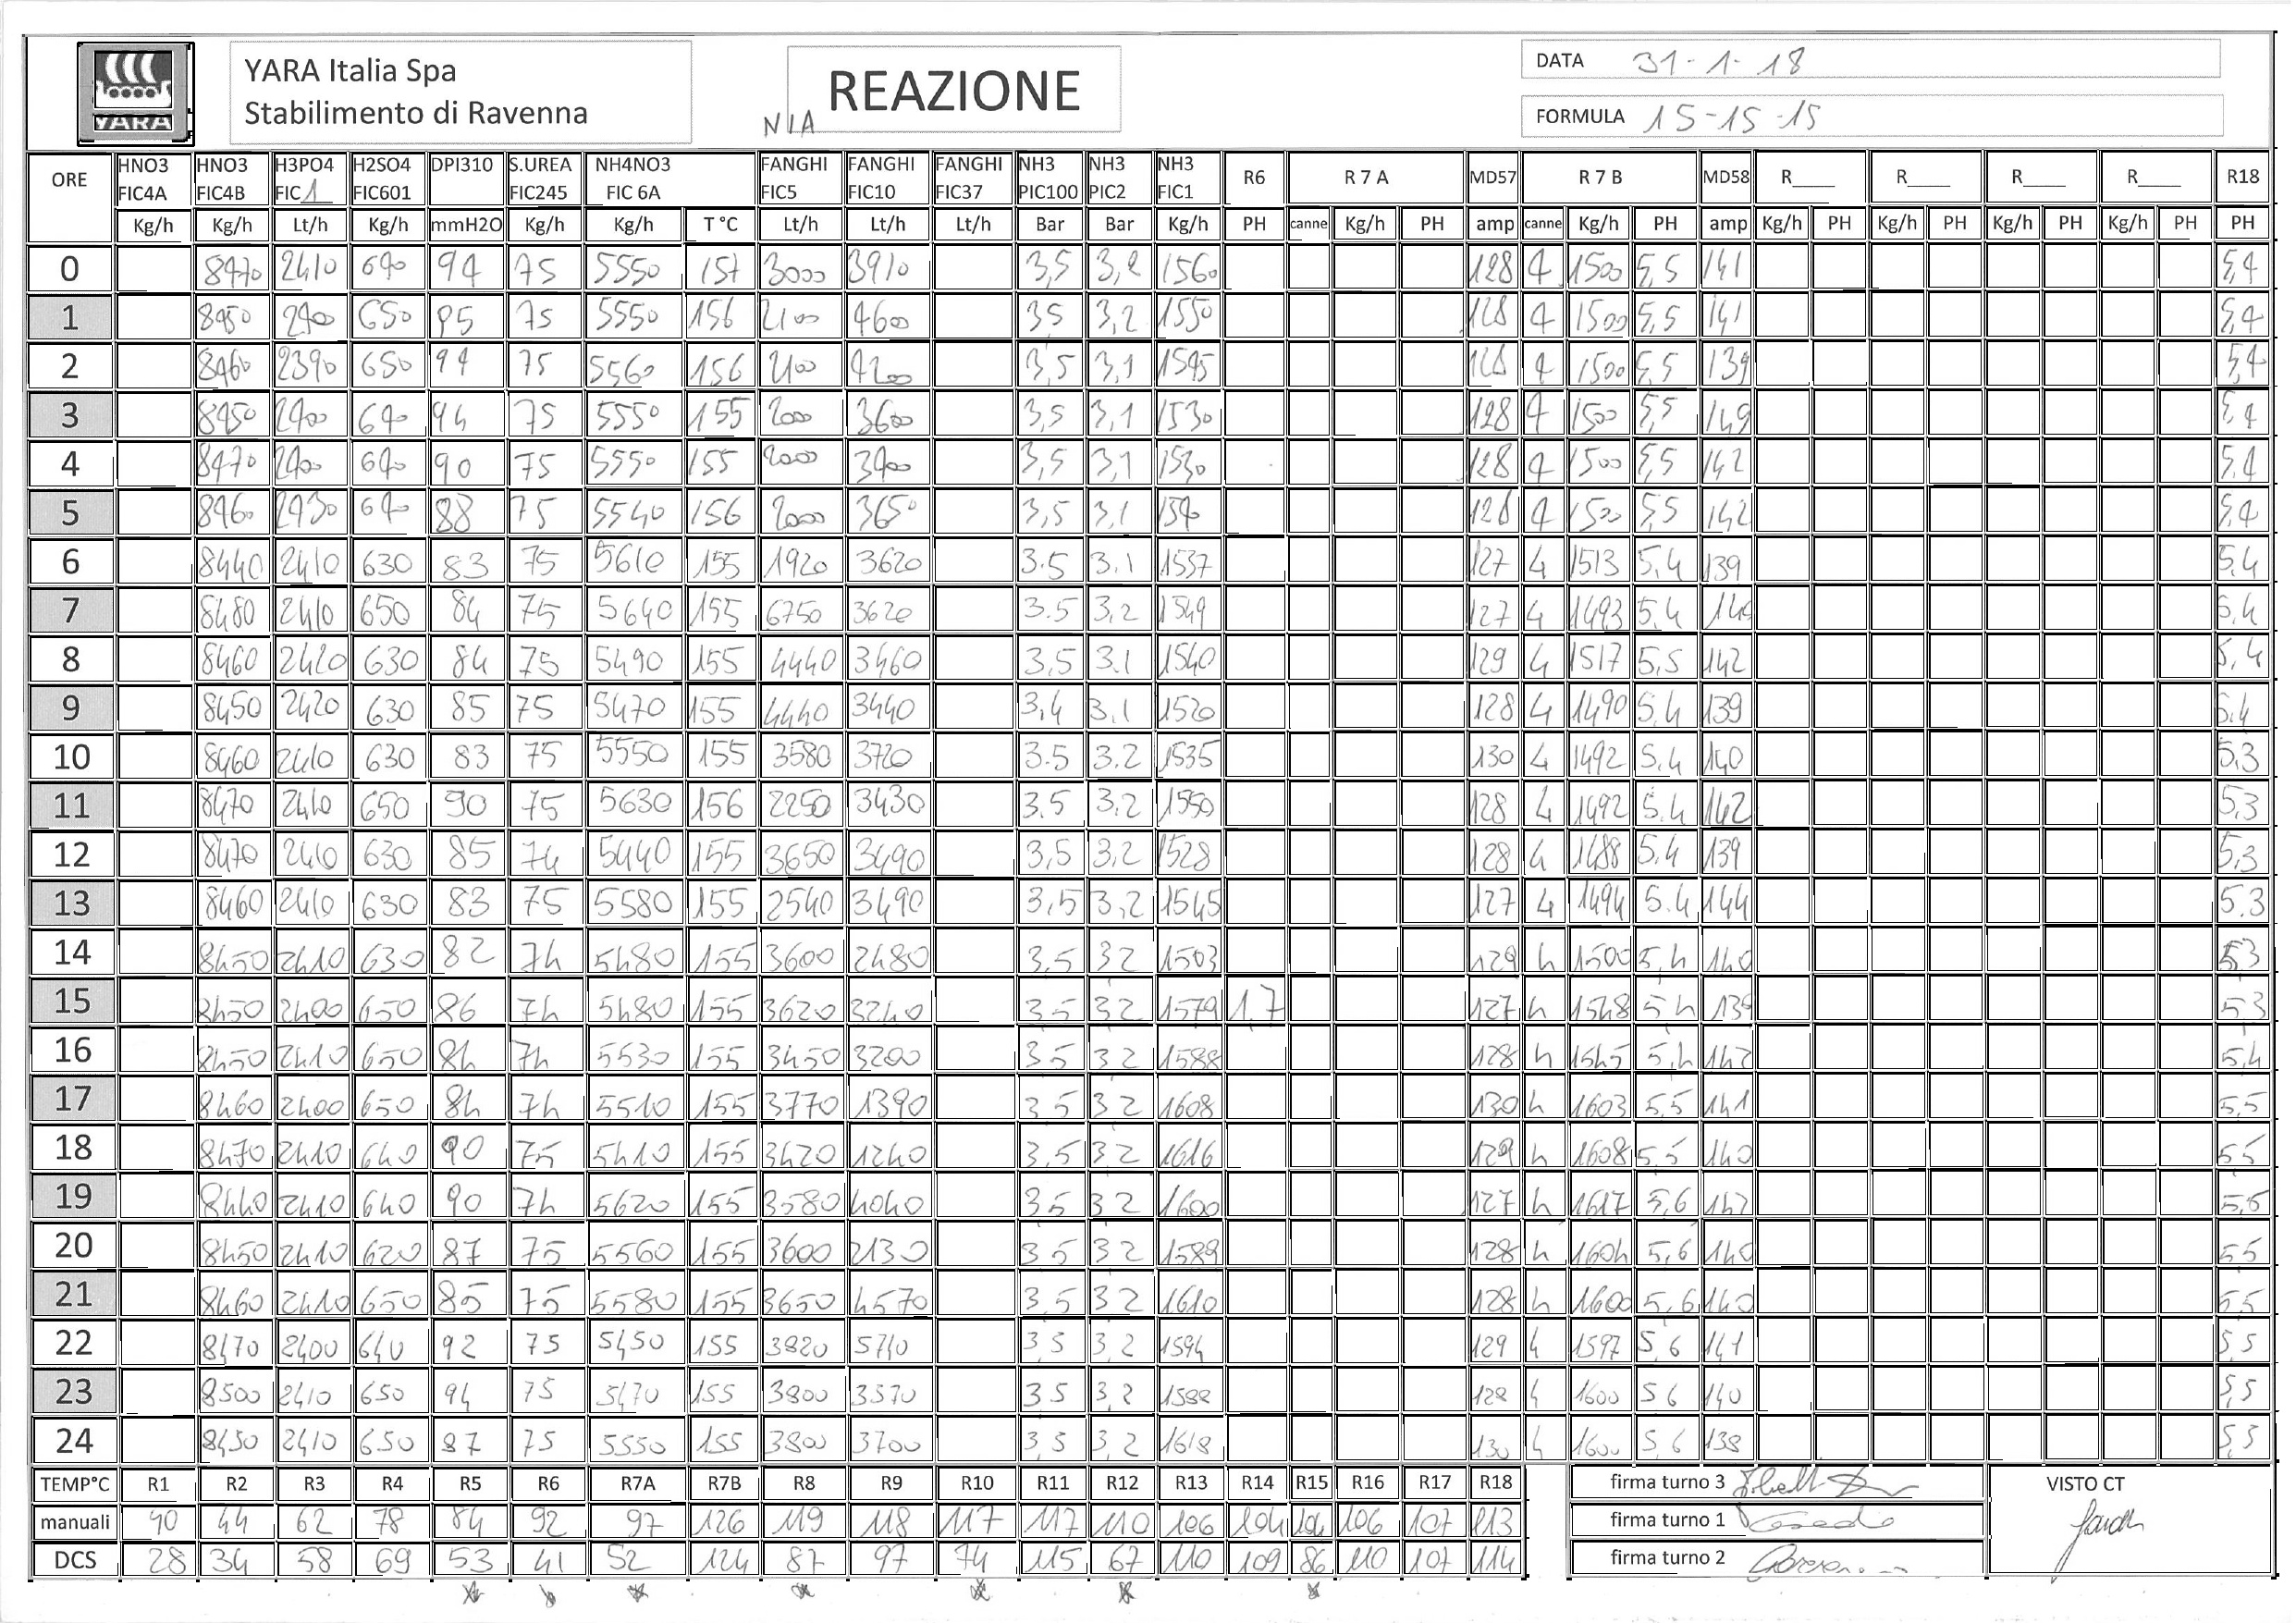 YARA
YARA Italia Spa
Stabilimento di Ravenna
NIA
REAZIONE
DATA 31-1-18
FORMULA 15-15-15
ORE HNO3 FIC4A HNO3 FIC4B H3PO4 FIC 1 H2SO4 FIC601 DPI310 S.UREA FIC245 NH4NO3 FIC 6A FANGHI FIC5 FANGHI FIC10 FANGHI FIC37 NH3 PIC100 NH3 PIC2 NH3 FIC1 R6 R 7 A MD57 R 7 B MD58 R____ R____ R____ R____ R18
Kg/h Kg/h Lt/h Kg/h mmH2O Kg/h Kg/h T °C Lt/h Lt/h Lt/h Bar Bar Kg/h PH canne Kg/h PH amp canne Kg/h PH amp Kg/h PH Kg/h PH Kg/h PH Kg/h PH PH
0 8470 2410 640 94 75 5550 157 3000 3910 3,5 3,2 1560 128 4 1500 5,5 141 5,4
1 8450 2400 650 95 75 5550 156 2100 4600 35 3,2 1550 128 4 1500 5,5 141 5,4
2 8460 2390 650 94 75 5560 156 2100 4200 3,5 3,1 1545 128 4 1500 5,5 139 5,4
3 8450 2400 640 94 75 5550 155 2000 3600 3,5 3,1 1530 128 4 1500 5,5 149 5,4
4 8470 2400 640 90 75 5550 155 2000 3400 3,5 3,1 1530 128 4 1500 5,5 142 5,4
5 8460 2430 640 88 75 5540 156 2000 3650 3,5 3,1 1540 128 4 1500 5,5 142 5,4
6 8440 2410 630 83 75 5610 155 1920 3620 3.5 3.1 1537 127 4 1513 5,4 139 5,4
7 8480 2410 650 84 75 5640 155 6750 3620 3.5 3,2 1549 127 4 1493 5.4 5.4
8 8460 2420 630 84 75 5490 155 4440 3460 3,5 3.1 1540 129 4 1517 5,5 142 5,4
9 8450 2420 630 85 75 5470 155 4440 3440 3,4 3.1 1520 128 4 1490 5.4 139 5.4
10 8460 2410 630 83 75 5550 155 3580 3720 3.5 3.2 1535 130 4 1492 5.4 140 5,3
11 8470 2410 650 90 75 5630 156 2250 3430 3.5 3,2 1550 128 4 1492 5.4 142 5,3
12 8470 2410 630 85 74 5440 155 3650 3490 3,5 3,2 1528 128 4 1488 5.4 139 5,3
13 8460 2410 630 83 75 5580 155 2540 3490 3,5 3,2 1545 127 4 1494 5.4 144 5.3
14 8450 2410 630 82 74 5480 155 3600 2480 3,5 32 1503 129 4 1500 5,4 140 53
15 8450 2400 650 86 74 5480 155 3620 3240 35 32 1579 1,7 127 4 1548 54 139 53
16 8450 2410 650 84 74 5530 155 3450 3200 35 32 1588 128 4 1545 5,4 142 5,4
17 8460 2400 650 84 74 5510 155 3770 1390 35 32 1608 130 4 1603 5,5 141 5,5
18 8470 2410 640 90 75 5410 155 3420 1240 3,5 32 1616 129 4 1608 5,5 140 55
19 8440 2410 640 90 74 5620 155 3580 4040 35 32 1600 127 4 1617 5,6 142 5,5
20 8450 2410 620 87 75 5560 155 3600 2130 35 32 1589 128 4 1604 5,6 140 55
21 8460 2410 650 85 75 5580 155 3650 4570 3,5 32 1610 128 4 1600 5,6 140 55
22 8470 2400 640 92 75 5450 155 3820 5740 35 3,2 1594 129 4 1597 5,6 141 5,5
23 8500 2410 650 94 75 5470 155 3800 3570 35 3,2 1588 128 4 1600 56 140 5,5
24 8450 2410 650 87 75 5550 155 3800 3700 3,5 3,2 1618 130 4 1600 56 138 5,5
TEMP°C R1 R2 R3 R4 R5 R6 R7A R7B R8 R9 R10 R11 R12 R13 R14 R15 R16 R17 R18
manuali 40 44 62 78 84 92 97 126 119 118 117 117 110 106 104 104 106 107 113
DCS 28 34 58 69 53 41 52 124 87 97 74 115 67 110 109 86 110 107 114
firma turno 3
firma turno 1
firma turno 2
VISTO CT